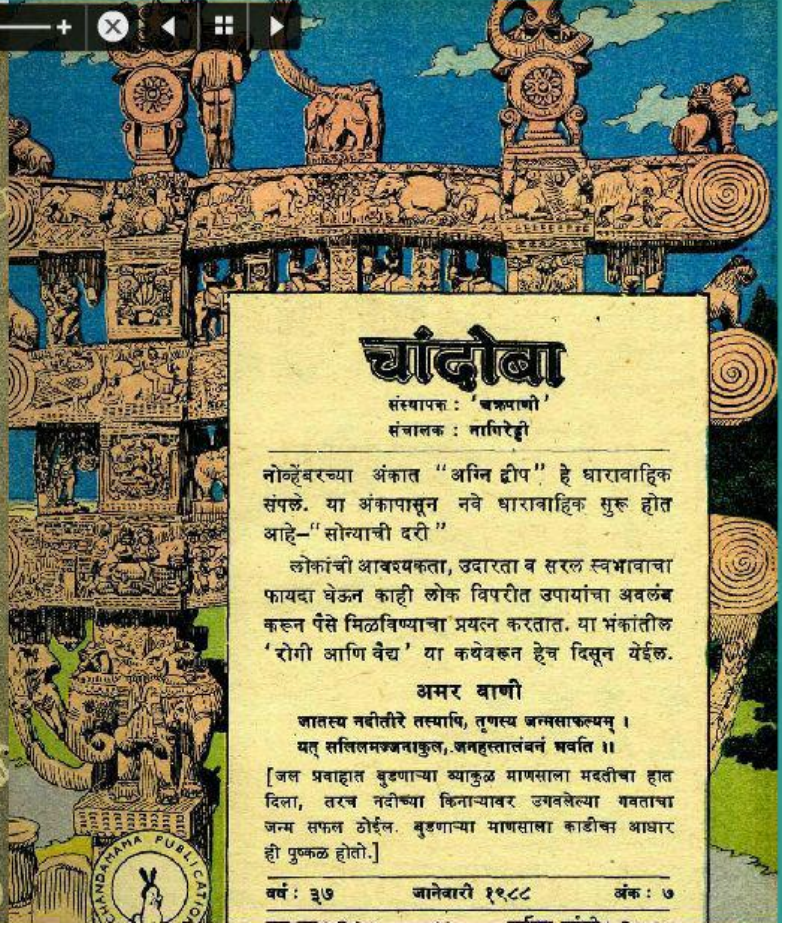 चांदोबा
संस्थापक : 'चक्रपाणी'
संचालक : नागिरेड्डी
नोव्हेंबरच्या अंकात "अग्नि द्वीप" हे धारावाहिक
संपले. या अंकापासून नवे धारावाहिक सुरू होत
आहे–"सोन्याची दरी"
लोकांची आवश्यकता, उदारता व सरल स्वभावाचा
फायदा घेऊन काही लोक विपरीत उपायांचा अवलंब
करून पैसे मिळविण्याचा प्रयत्न करतात. या अंकांतील
'रोगी आणि वैद्य' या कथेवरून हेच दिसून येईल.
अमर वाणी
जातस्य नदीतीरे तस्यापि, तृणस्य जन्मसाफल्यम् ।
यत् सलिलमज्जनाकुल, जनहस्तालंबनं भवति ॥
[जल प्रवाहात बुडणाऱ्या व्याकुळ माणसाला मदतीचा हात
दिला, तरच नदीच्या किनाऱ्यावर उगवलेल्या गवताचा
जन्म सफल ठोईल. बुडणाऱ्या माणसाला काडीचा आधार
ही पुष्कळ होतो.]
वर्ष : ३७ जानेवारी १९८८ अंक : ७
CHANDAMAMA PUBLICATION